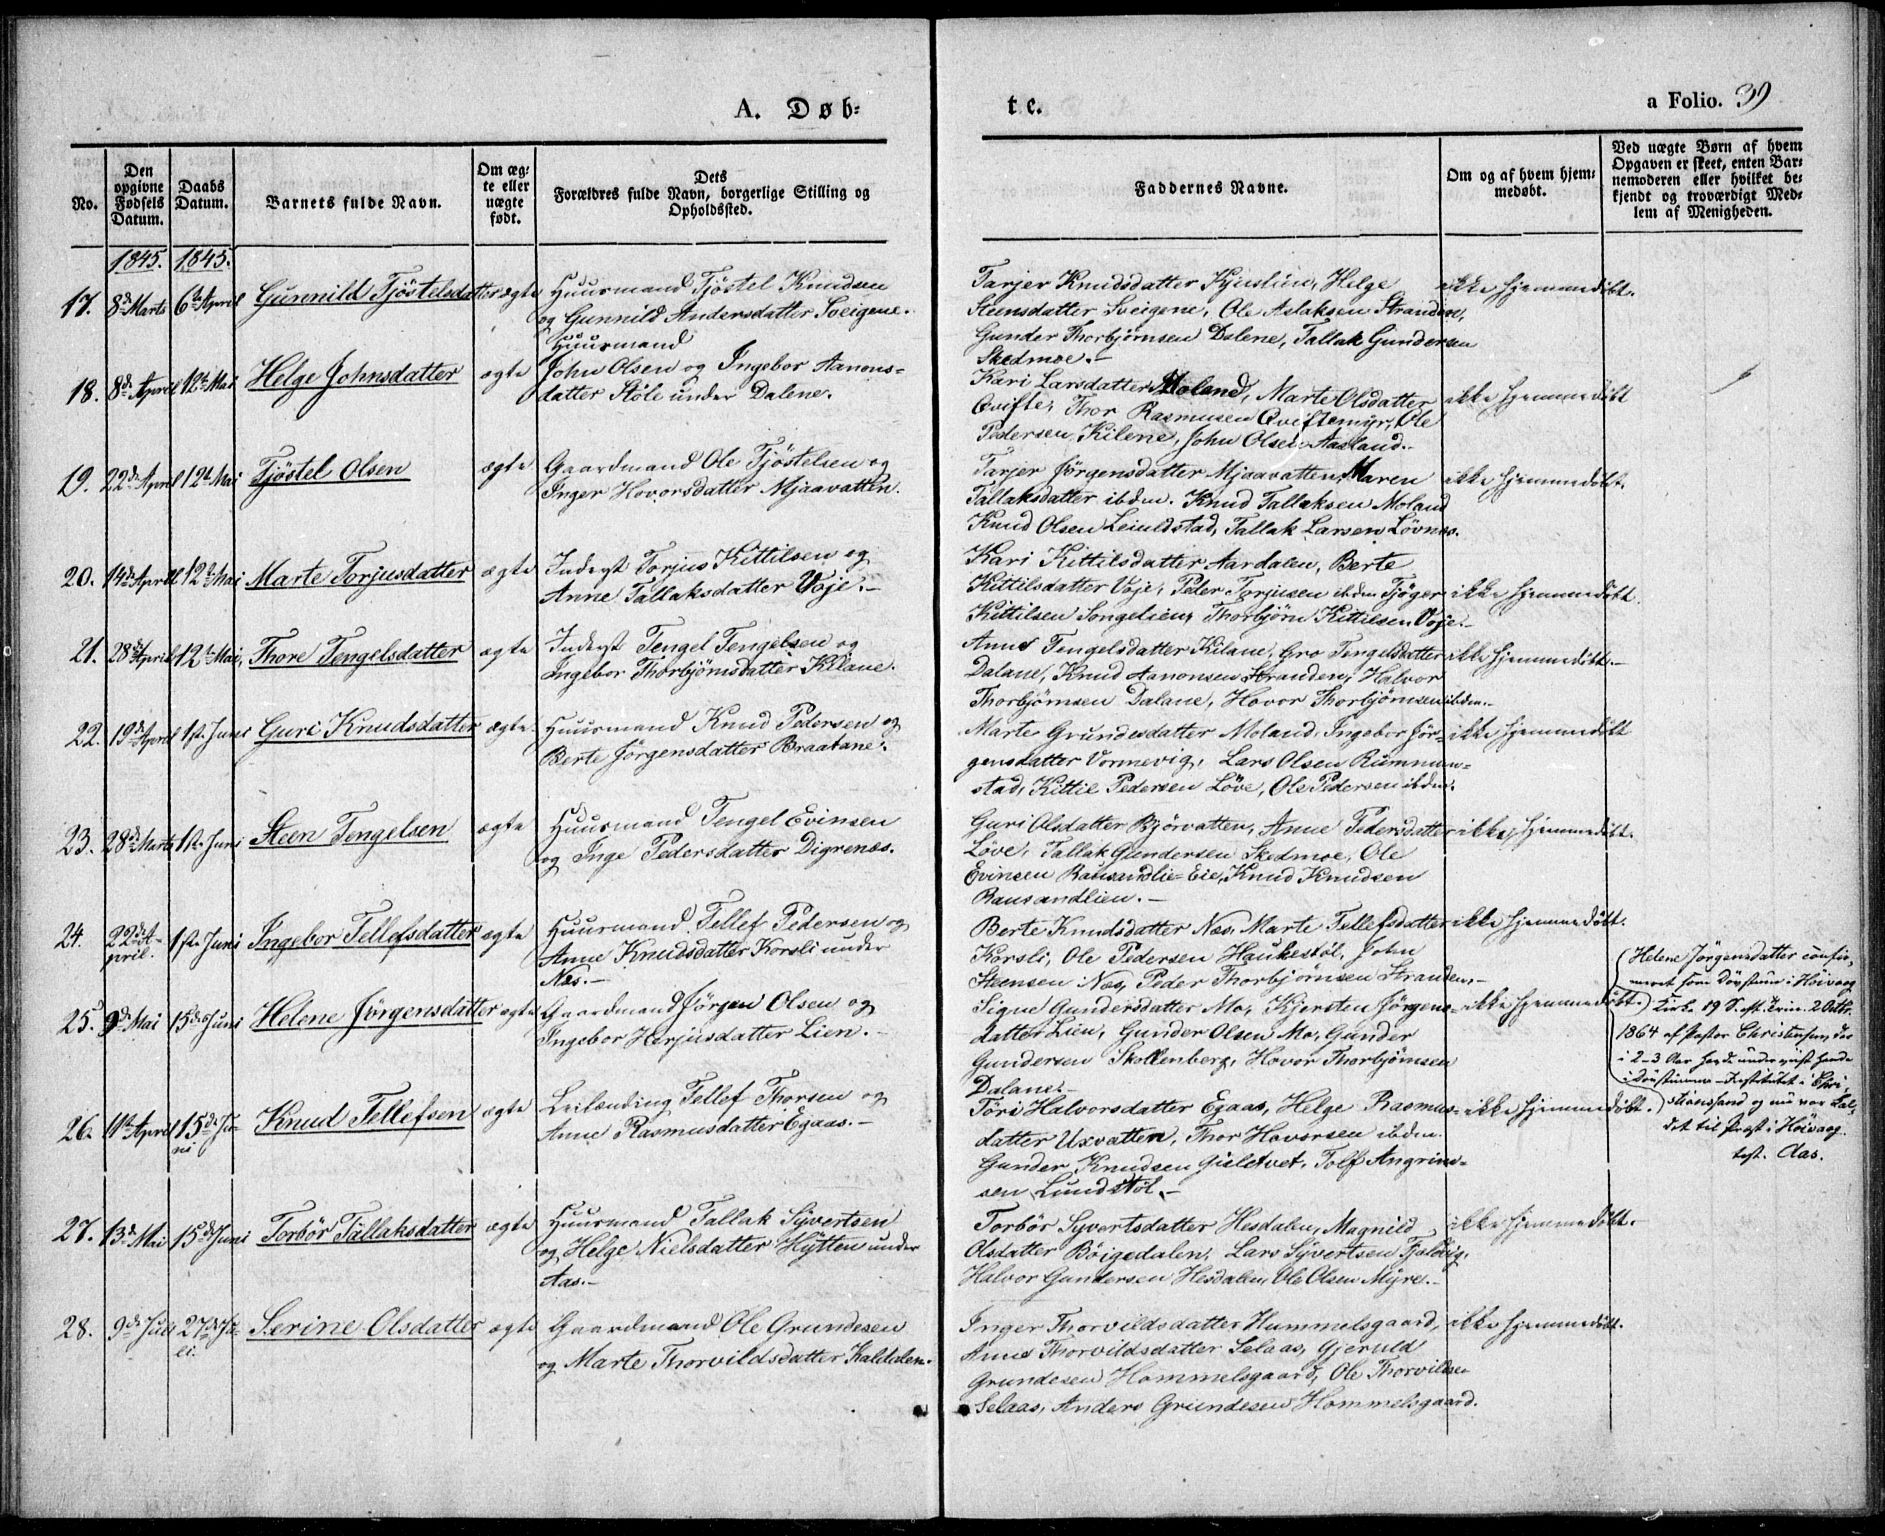 A. Døb-
te.
a Folio. 39
No.
Den opgivne Fødsels Datum.
Daabs Datum.
Barnets fulde Navn.
Om æg-
te eller
uægte
født.
Dets
Forældres fulde Navn, borgerlige Stilling og
Opholdssted.
Faddernes Navne.
Om og af hvem hjem-
medøbt.
Ved uægte Børn af hvem
Opgaven er skeet, enten Bar-
nemoderen eller hvilket be-
kjendt og troværdigt Med-
lem af Menigheden.
1845. 1845.
17. 8de Marts 6te April Gunnild Tjöstelsdatter ægte Huusmand Tjöstel Knudsen
og Gunnild Andersdatter Sveigene.
Tarjer Knudsdatter Helge ikke hjemmedöbt.
Steensdatter Sveigene, Ole Aslaksen Stranden,
Gunder Thorbjörnsen Dalene, Tallak Gundersen
Skedmoe.-
18. 8de April 12te Mai Helge Johnsdatter ægte Huusmand
John Olsen og Ingebor Aanons-
datter Stöle under Dalene.
Kari Larsdatter Moland, Marte Olsdatter ikke hjemmedöbt
Qvifte, Thor Rasmusen Qviftemyr, Ole
Pedersen Kilene, John Olsen Aasland.-
19. 22de April 12te Mai Tjöstel Olsen ægte Gaardmand Ole Tjöstelsen og
Inger Hovorsdatter Mjaavatten.
Tarjer Jörgensdatter Mjaavatten, Maren ikke hjemmedöbt.
Tallaksdatter ibdm. Knud Tallaksen Moland
Knud Olsen Leiuldstad, Tallak Larsen Lövnes.
20. 14de April 12te Mai Marte Torjusdatter ægte Inderst Torjus Kittilsen og
Anne Tallaksdatter Voje.-
Kari Kittilsdatter Aardalen, Berte
Kittilsdatter Voje, Peder Torjusen ibdm Tjöger ikke hjemmedöbt.
Kittilsen Songelien, Thorbjörn Kittilsen Voje.-
21. 28de April 12te Mai, Thore Tengelsdatter ægte Inderst Tengel Tengelsen og
Ingebor Thorbjörnsdatter Kilane.
Anne Tengelsdatter Kilane, Gro Tengelsdatter ikke hjemmedöbt.-
Dalane, Knud Aanonsen Stranden, Halvor
Thorbjörnsen Dalane, Hovor Thorbjörnsen ibdm.-
22. 19de April 1ste Juni Guri Knudsdatter ægte Huusmand Knud Pedersen og
Berte Jörgensdatter Braatane.
Marte Grundesdatter Moland, Ingebor Jör- ikke hjemmedöbt
gensdatter Vormevig, Lars Olsen Rümmun-
stad, Kittil Pedersen Löve, Ole Pedersen ibdm.
23. 28de Marts 1ste Juni Steen Tengelsen ægte Huusmand Tengel Evinsen
og Inge Pedersdatter Digrenæs.
Guri Olsdatter Björvatten, Anne Pedersdatter ikke hjemmedöbt.
Löve, Tallak Gundersen Skedmoe, Ole
Evinsen Rausandlie-Eie, Knud Knudsen
Rausandlien.-
24. 22de A-
pril. 1ste Juni Ingebor Tellefsdatter ægte Huusmand Tellef Pedersen og
Anne Knudsdatter Korsli under
Næs.-
Berte Knudsdatter Næs, Marte Tellefsdatter ikke hjemmedöbt.
Korsli, Ole Pedersen Haukestöl, John
Steensen Næs, Peder Thorbjörnsen Stranden.-
25. 9de Mai 15de Juni Helene Jörgensdatter ægte Gaardmand Jörgen Olsen og
Ingebor Herjusdatter Lien.-
Signe Gundersdatter Mo, Kjersten Jörgens- ikke hjemmedöbt.
datter Lien, Gunder Olsen Mo, Gunder
Gundersen Skollenberg, Hovor Thorbjörnsen
Dalane.-
Helene Jörgensdatter confir-
meret som Dövstum i Höivaag
Kirke 19 S. eft. Trin. 2 Octbr.
1864 af Pastor Christensen, der
i 2-3 Aar havde underviist hende
i Dövstumme-Institutet i Chri-
stianssand og nu var kal-
det til Præst i Höivaag.
test. Aas.
26. 11te April 15de Ju-
ni Knud Tellefsen ægte Leilænding Tellef Thorsen og
Anne Rasmusdatter Egaas.-
Töri Halvorsdatter Egaas, Helge Rasmus- ikke hjemmedöbt.
datter Uxvatten, Thor Hovorsen ibdm.
Gunder Knudsen Gisletvet, Tolf Angrim-
sen Lundstöl.-
27. 13de Mai 15de Juni Torbör Tallaksdatter ægte Huusmand Tallak Syvertsen
og Helge Nielsdatter Hytten under
Aas.-
Torbör Syvertsdatter Hesdalen, Magnild ikke hjemmedöbt.
Olsdatter Böigedalen, Lars Syvertsen Tjeldvig,
Halvor Gundersen Hesdalen, Ole Olsen Myre.-
28. 9de Juli 27de Ju-
li. Serine Olsdatter ægte Gaardmand Ole Grundesen
og Marte Thorvildsdatter Kaldalen.
Inger Thorvildsdatter Hummelsgaard, ikke hjemmedöbt.
Anne Thorvildsdatter Selaas, Gjeruld
Grundesen Hommelsgaard, Ole Thorvildsen
Selaas, Anders Grundesen Hommelsgaard.